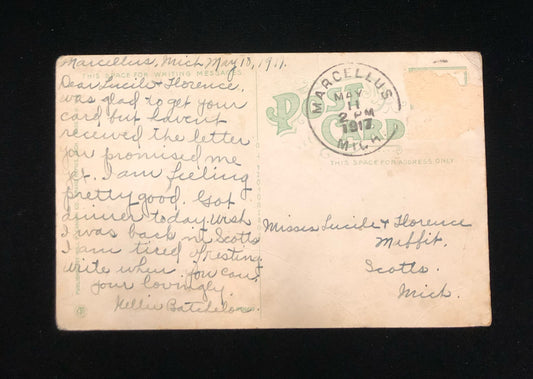 Marcellus, Mich May 10, 1911.
THIS SPACE FOR WRITING MESSAGES
Dear Lucile & Florence,
was glad to get your
card but havent
received the letter
you promised me
yet. I am feeling
pretty good. Got
dinner today. Wish
I was back in Scotts
I am tired of resting
write when you can,
your lovingly,
Nellie Batchelor
POST CARD
MARCELLUS
MAY
11
2 PM
MICH.
THIS SPACE FOR ADDRESS ONLY
Misses Lucile & Florence
Moffit.
Scotts.
Mich.